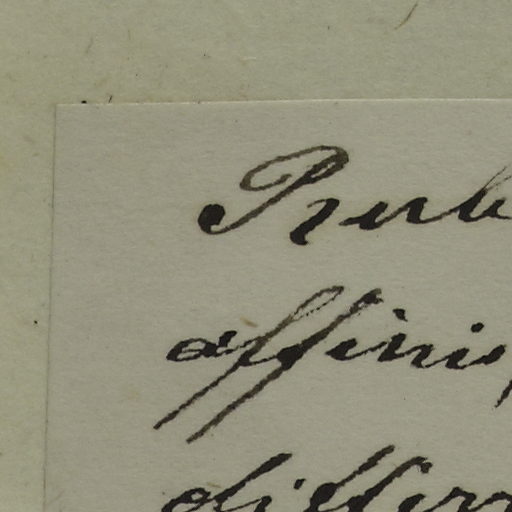 Rub
affinis,
differ